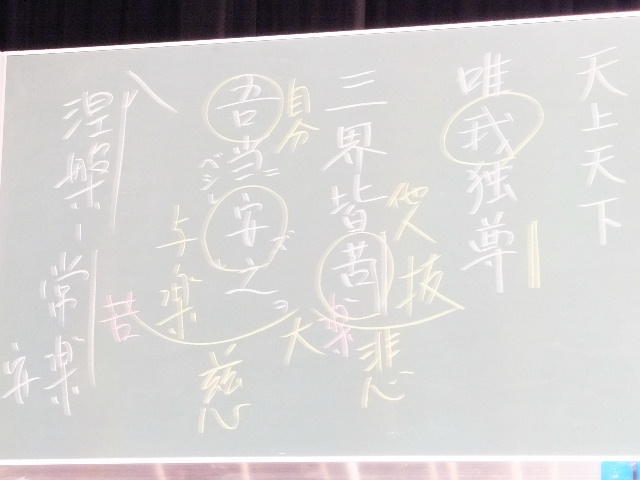 天上天下
唯我独尊
他人
抜
三界皆苦
楽
悲
自分
大
吾当安之
ベシ
ズ
与楽
慈
苦
涅槃ー常楽
安